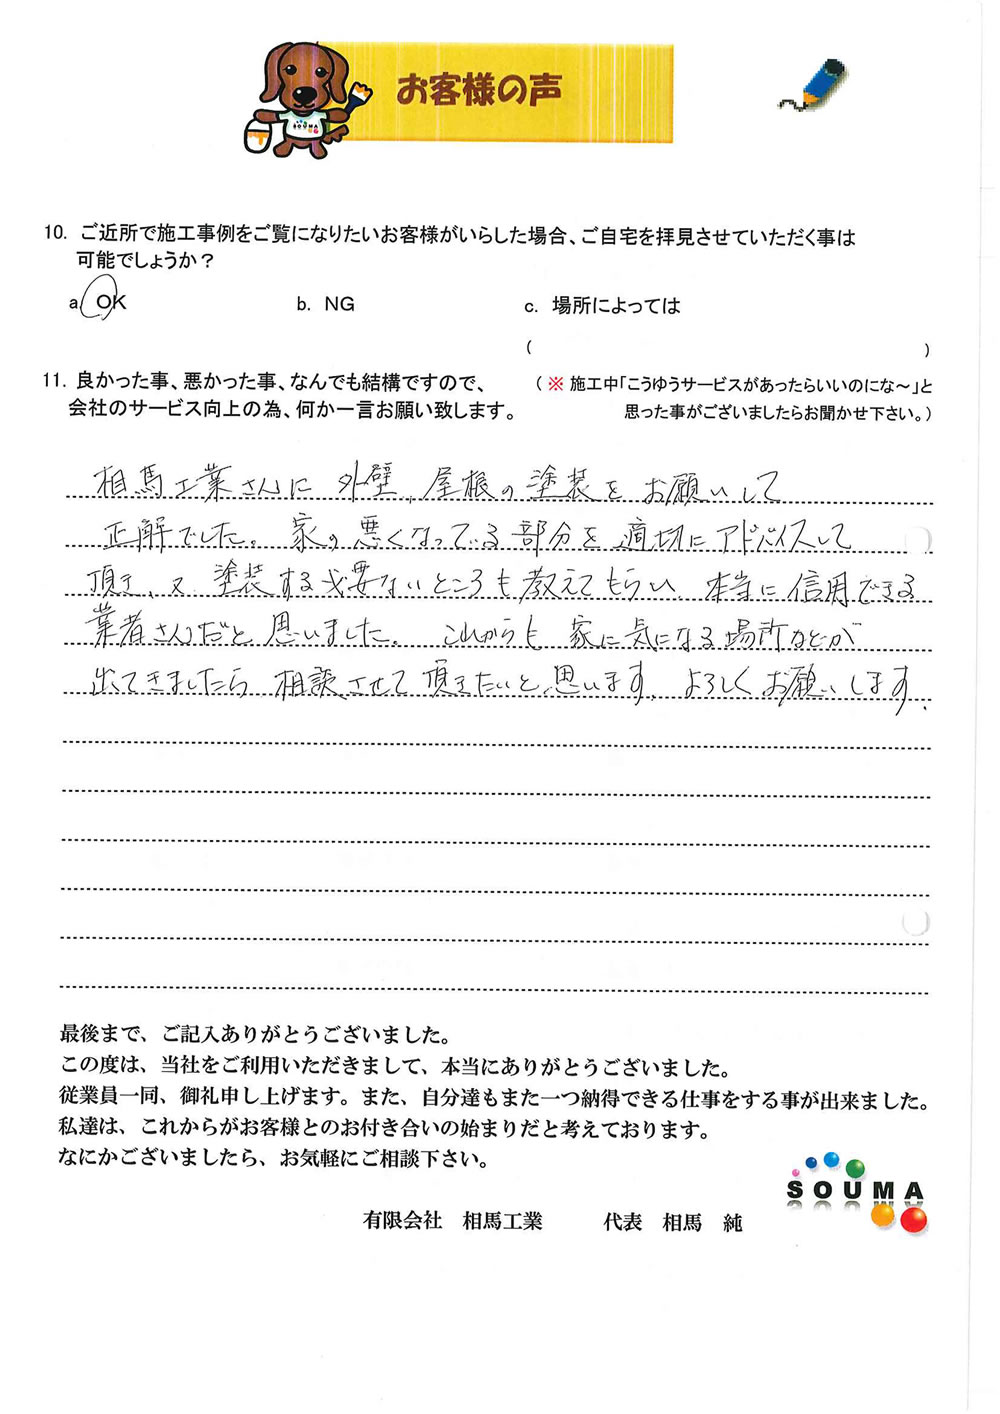 お客様の声
SOUMA
10. ご近所で施工事例をご覧になりたいお客様がいらした場合、ご自宅を拝見させていただく事は
可能でしょうか？
a. OK b. NG c. 場所によっては
( )
11. 良かった事、悪かった事、なんでも結構ですので、 （ ※ 施工中「こうゆうサービスがあったらいいのにな～」と
会社のサービス向上の為、何か一言お願い致します。 思った事がございましたらお聞かせ下さい。）
相馬工業さんに 外壁、屋根の塗装を お願いして
正解でした。家の悪くなっている部分を適切にアドバイスして
頂き、又、塗装する必要ないところも教えてもらい、本当に信用できる
業者さんだと思いました。これからも 家に気になる場所などが
出てきましたら 相談させて頂きたいと思います。よろしくお願いします。
最後まで、ご記入ありがとうございました。
この度は、当社をご利用いただきまして、本当にありがとうございました。
従業員一同、御礼申し上げます。また、自分達もまた一つ納得できる仕事をする事が出来ました。
私達は、これからがお客様とのお付き合いの始まりだと考えております。
なにかございましたら、お気軽にご相談下さい。
SOUMA
有限会社 相馬工業 代表 相馬 純